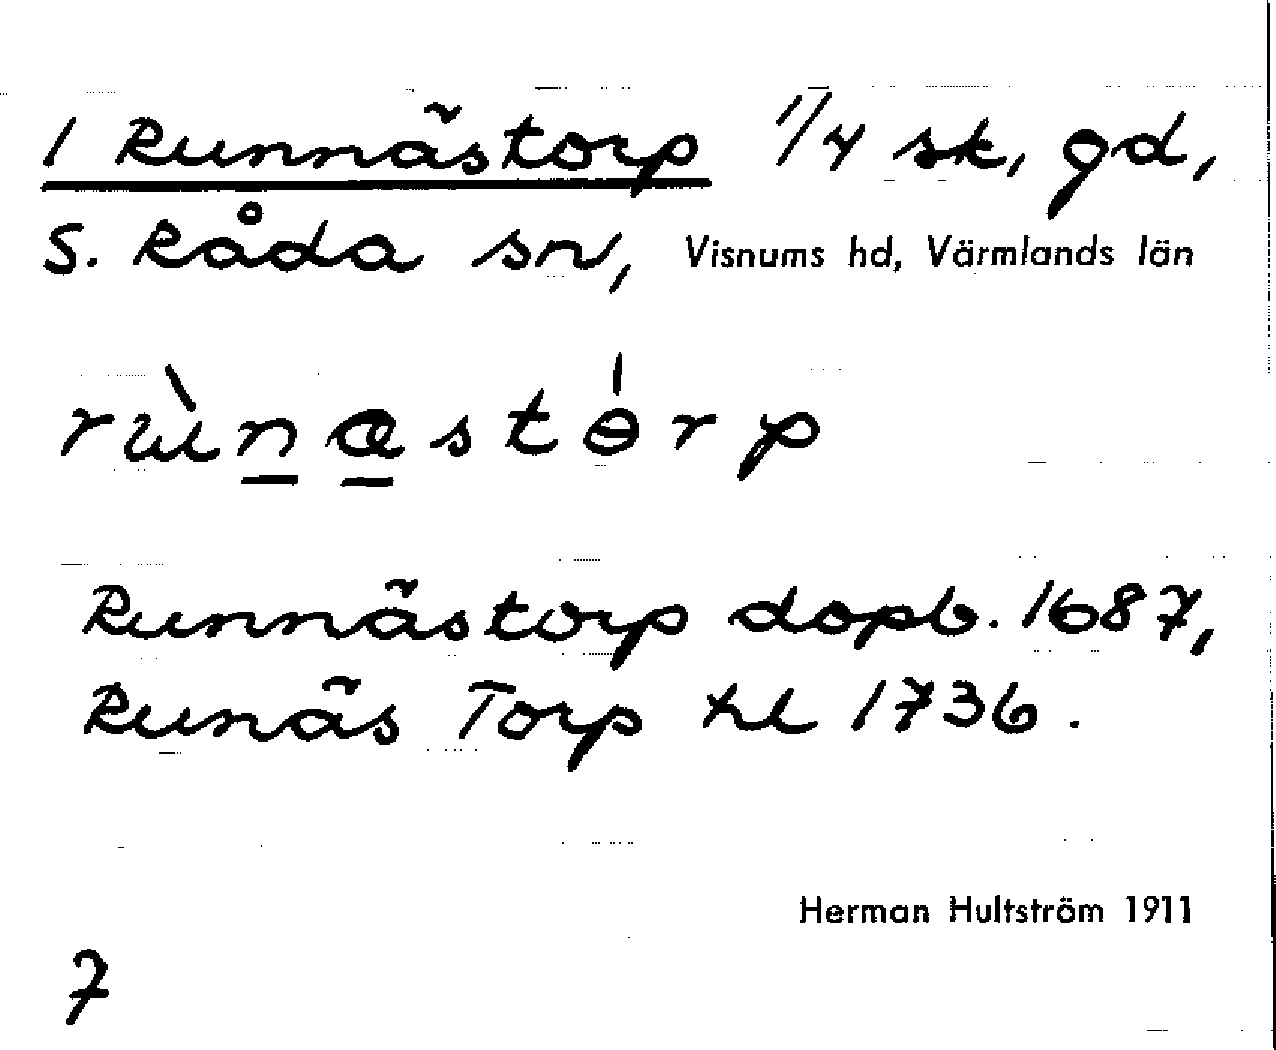 1 Runnästorp 1/4 sk, gd,
S. Råda sn, Visnums hd, Värmlands län
Runnästorp dopb. 1687,
Runäs Torp hl 1736.
Herman Hultström 1911
7